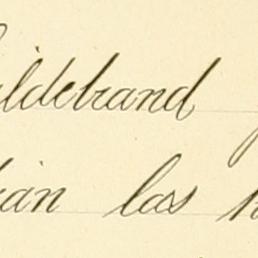 ildebrand
ian las